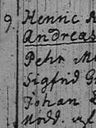 9. Henric
Andreas
Pehr M
Sigfrid G
Johan